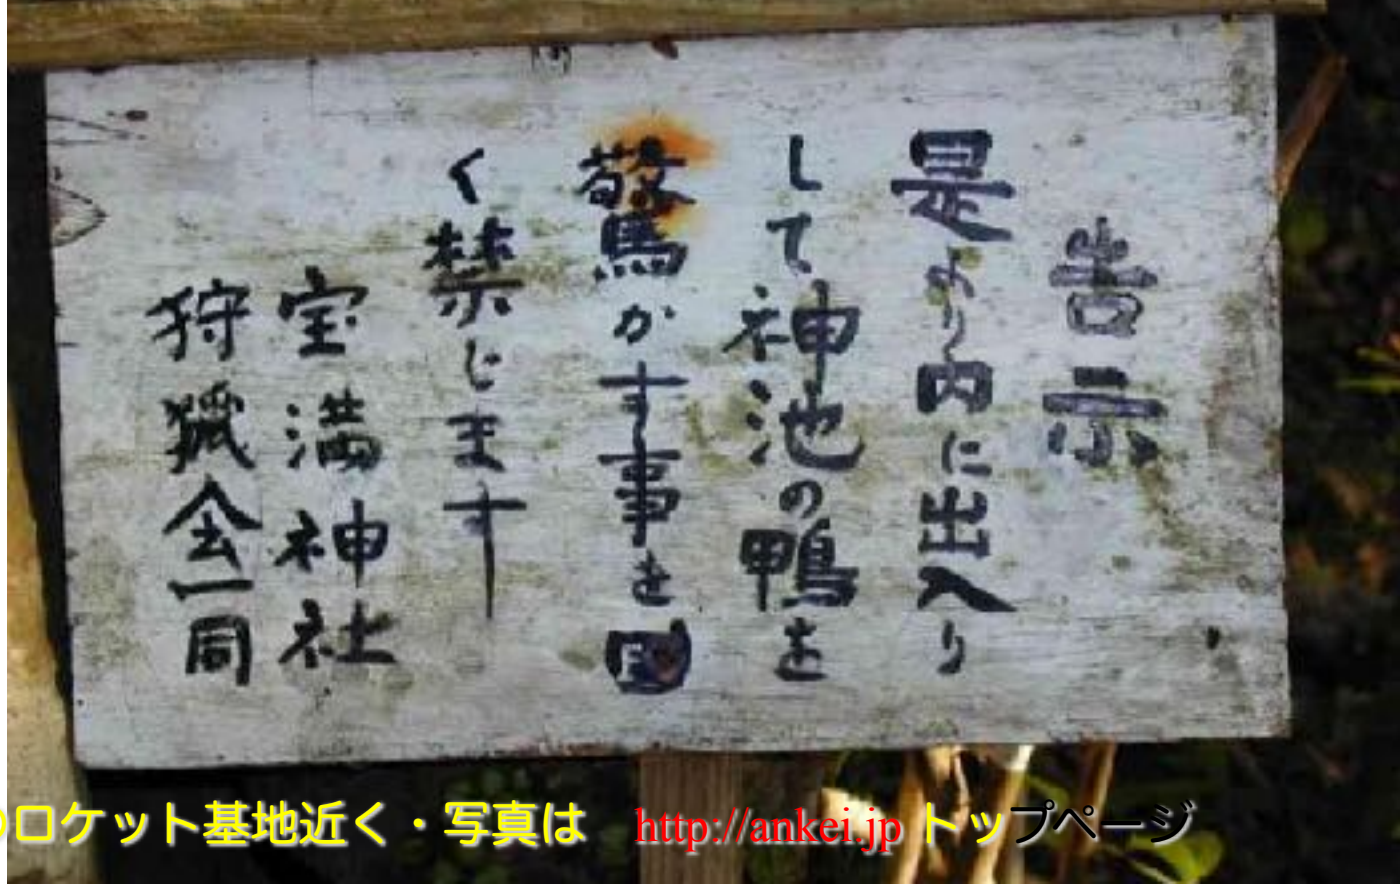 告示
是より内に出入り
して神池の鴨を
驚かす事を固
く禁じます
宝満神社
狩猟会一同
のロケット基地近く・写真は http://ankei.jp トップページ